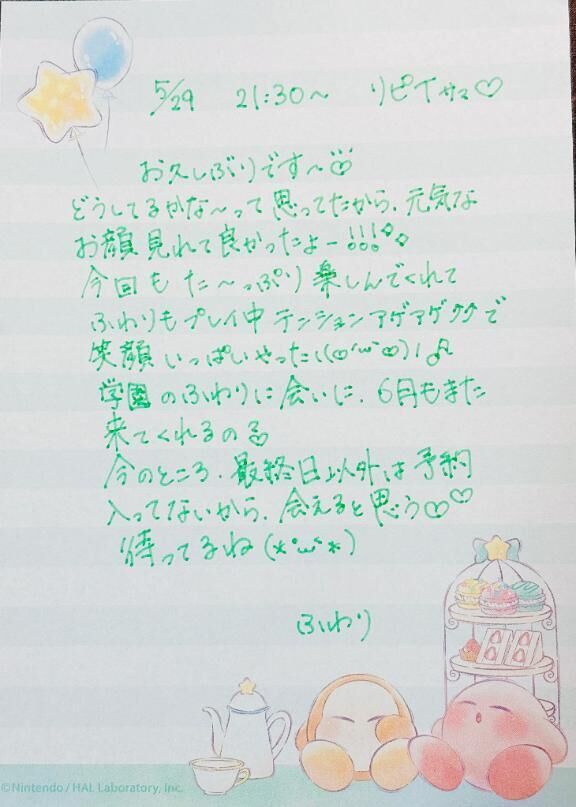 5/29 21:30～ リピイサマ♡
お久しぶりです～♡
どうしてるかな～って思ってたから、元気な
お顔見れて良かったよー!!!
今回もた～っぷり楽しんでくれて
ふわりもプレイ中テンションアゲアゲククで
笑顔いっぱいやった ((♡'ω'♡))♫
学園のふわりに会いに、6月もまた
来てくれるの♡
今のところ、最終日以外は予約
入ってないから、会えると思う♡♡
待ってるね(*'ω'*)
ふわり
©Nintendo / HAL Laboratory, Inc.